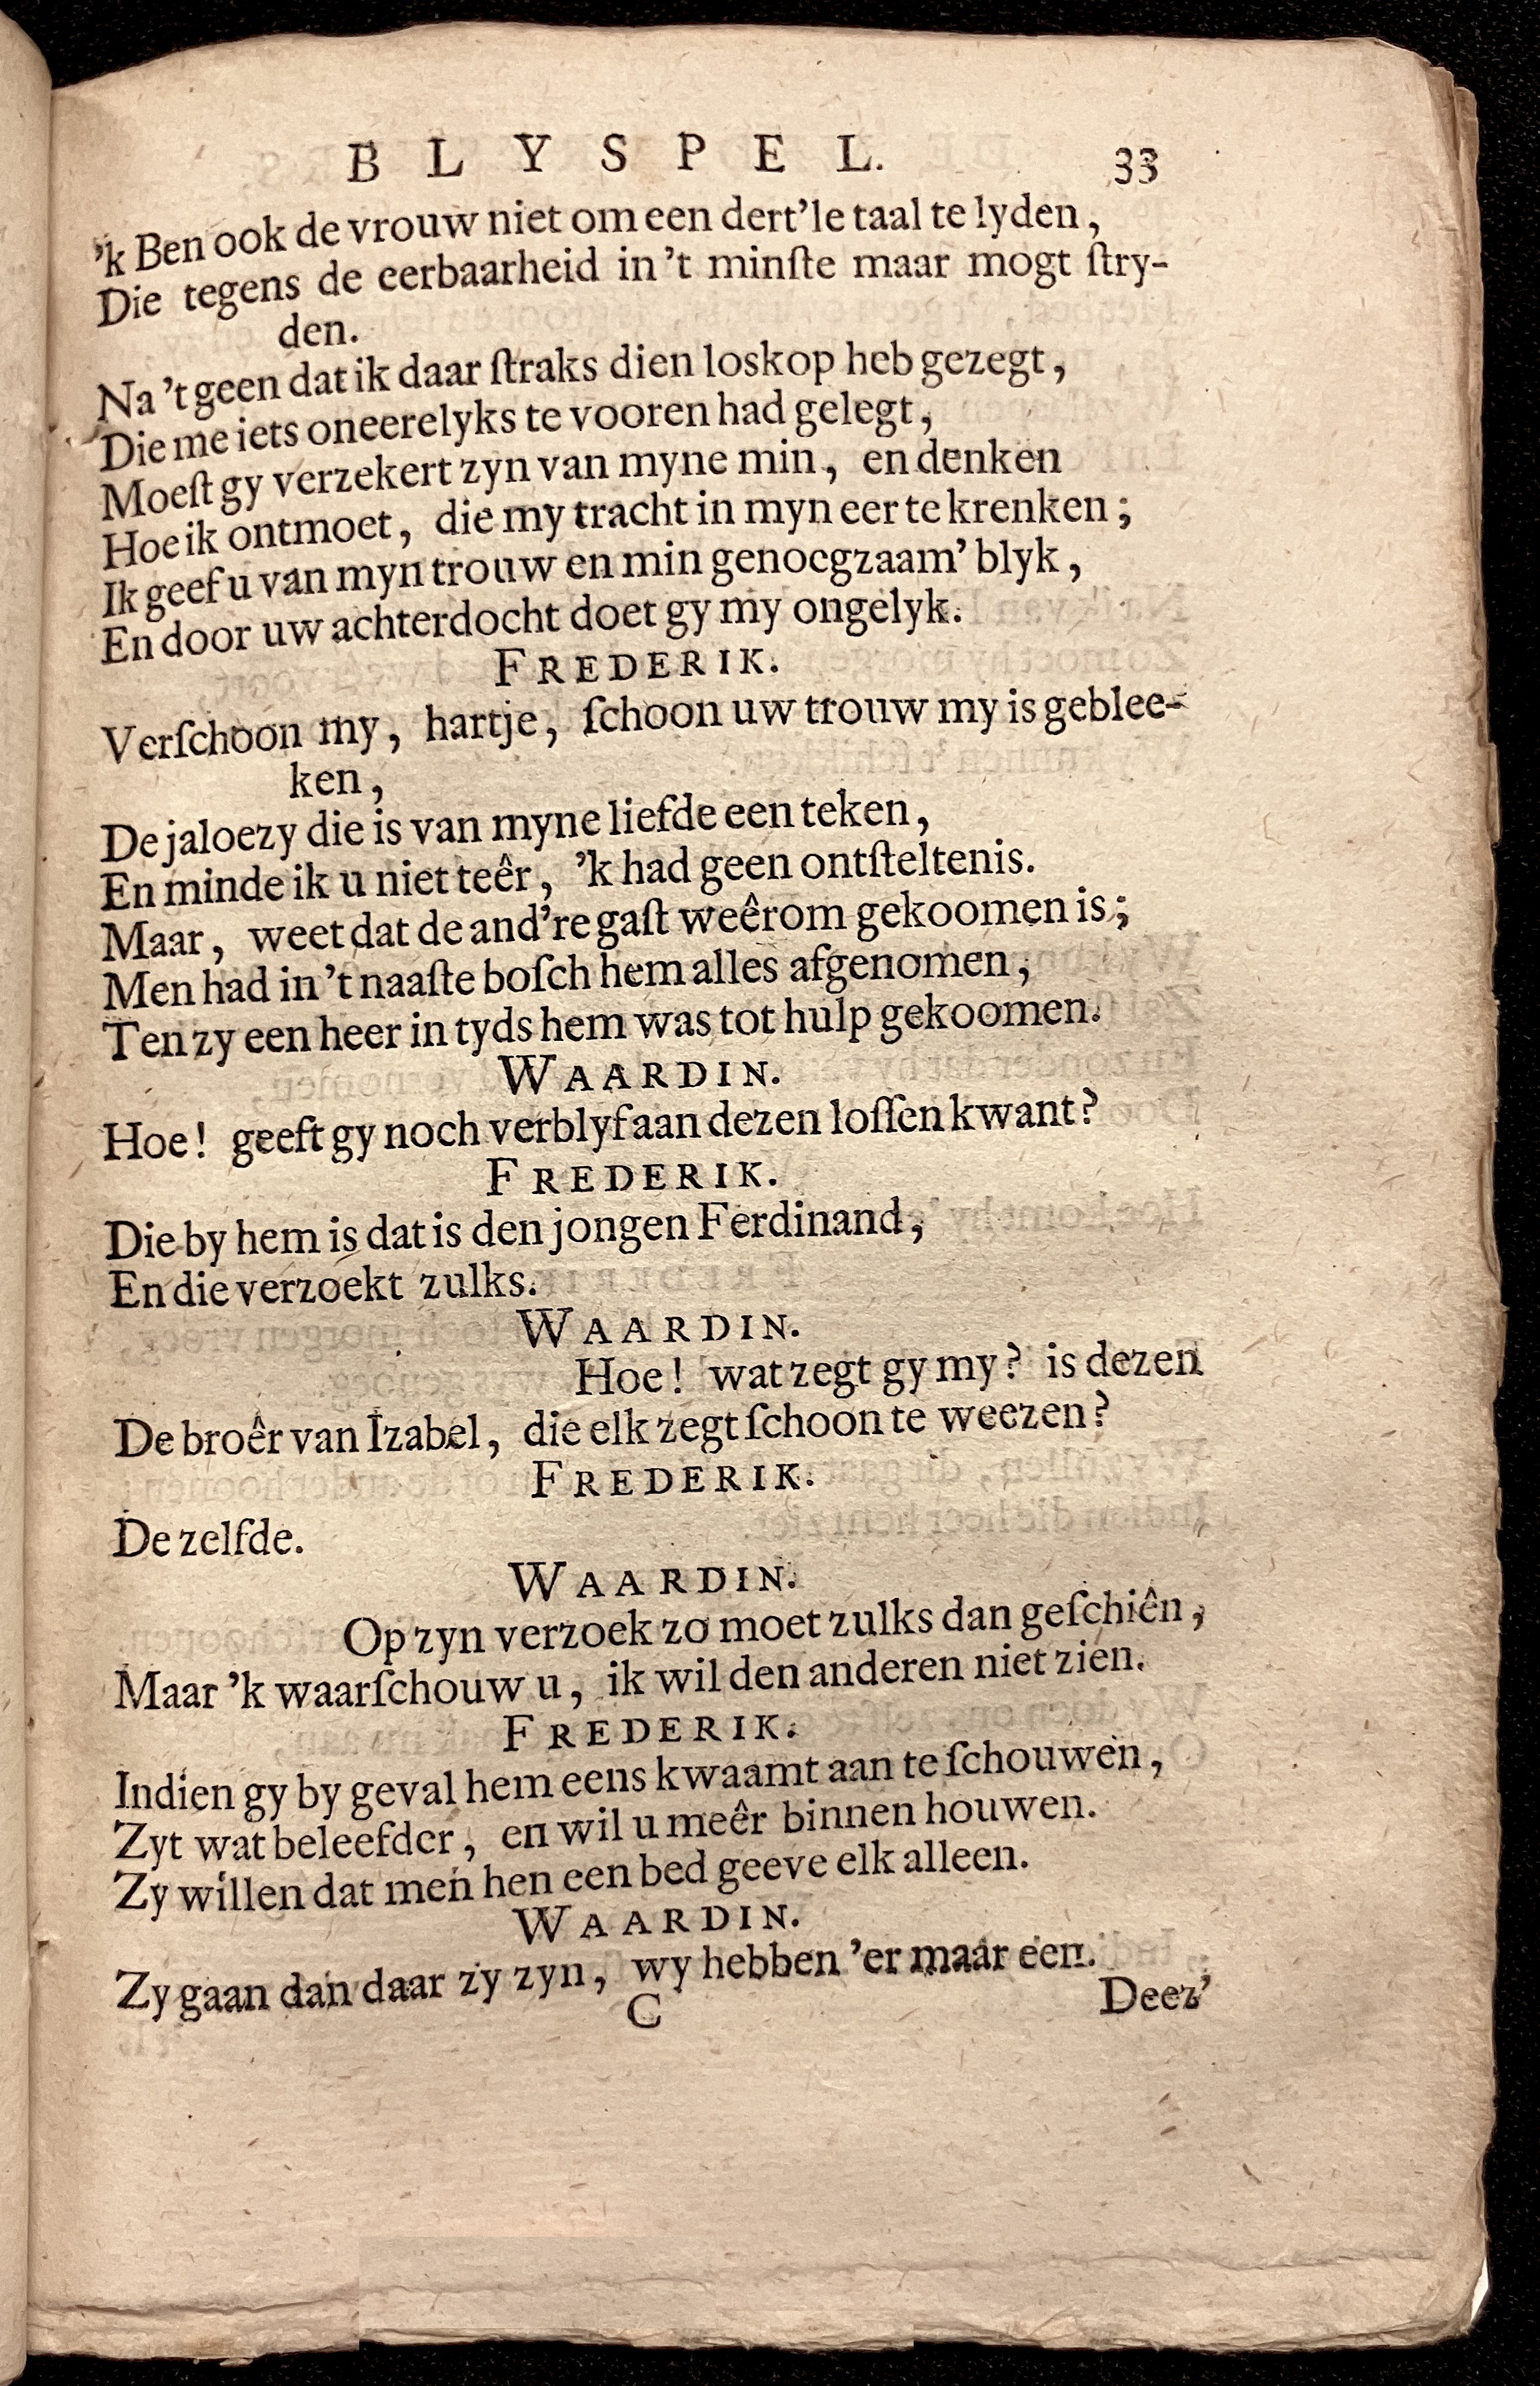 B L Y S P E L. 33
’k Ben ook de vrouw niet om een dert’le taal te lyden,
Die tegens de eerbaarheid in ’t minſte maar mogt ſtry-
den.
Na ’t geen dat ik daar ſtraks dien loskop heb gezegt,
Die me iets oneerelyks te vooren had gelegt,
Moeſt gy verzekert zyn van myne min, en denken
Hoe ik ontmoet, die my tracht in myn eer te krenken;
Ik geef u van myn trouw en min genoegzaam’ blyk,
En door uw achterdocht doet gy my ongelyk.
FREDERIK.
Verſchoon my, hartje, ſchoon uw trouw my is geblee-
ken,
De jaloezy die is van myne liefde een teken,
En minde ik u niet teêr, ’k had geen ontſteltenis.
Maar, weet dat de and’re gaſt weêrom gekoomen is;
Men had in ’t naaſte boſch hem alles afgenomen,
Ten zy een heer in tyds hem was tot hulp gekoomen.
WAARDIN.
Hoe! geeft gy noch verblyf aan dezen loſſen kwant?
FREDERIK.
Die by hem is dat is den jongen Ferdinand,
En die verzoekt zulks.
WAARDIN.
Hoe! wat zegt gy my? is dezen
De broêr van Izabel, die elk zegt ſchoon te weezen?
FREDERIK.
De zelfde.
WAARDIN.
Op zyn verzoek zo moet zulks dan geſchiên,
Maar ’k waarſchouw u, ik wil den anderen niet zien.
FREDERIK.
Indien gy by geval hem eens kwaamt aan te ſchouwen,
Zyt wat beleefder, en wil u meêr binnen houwen.
Zy willen dat men hen een bed geeve elk alleen.
WAARDIN.
Zy gaan dan daar zy zyn, wy hebben ’er maar een.
C Deez’